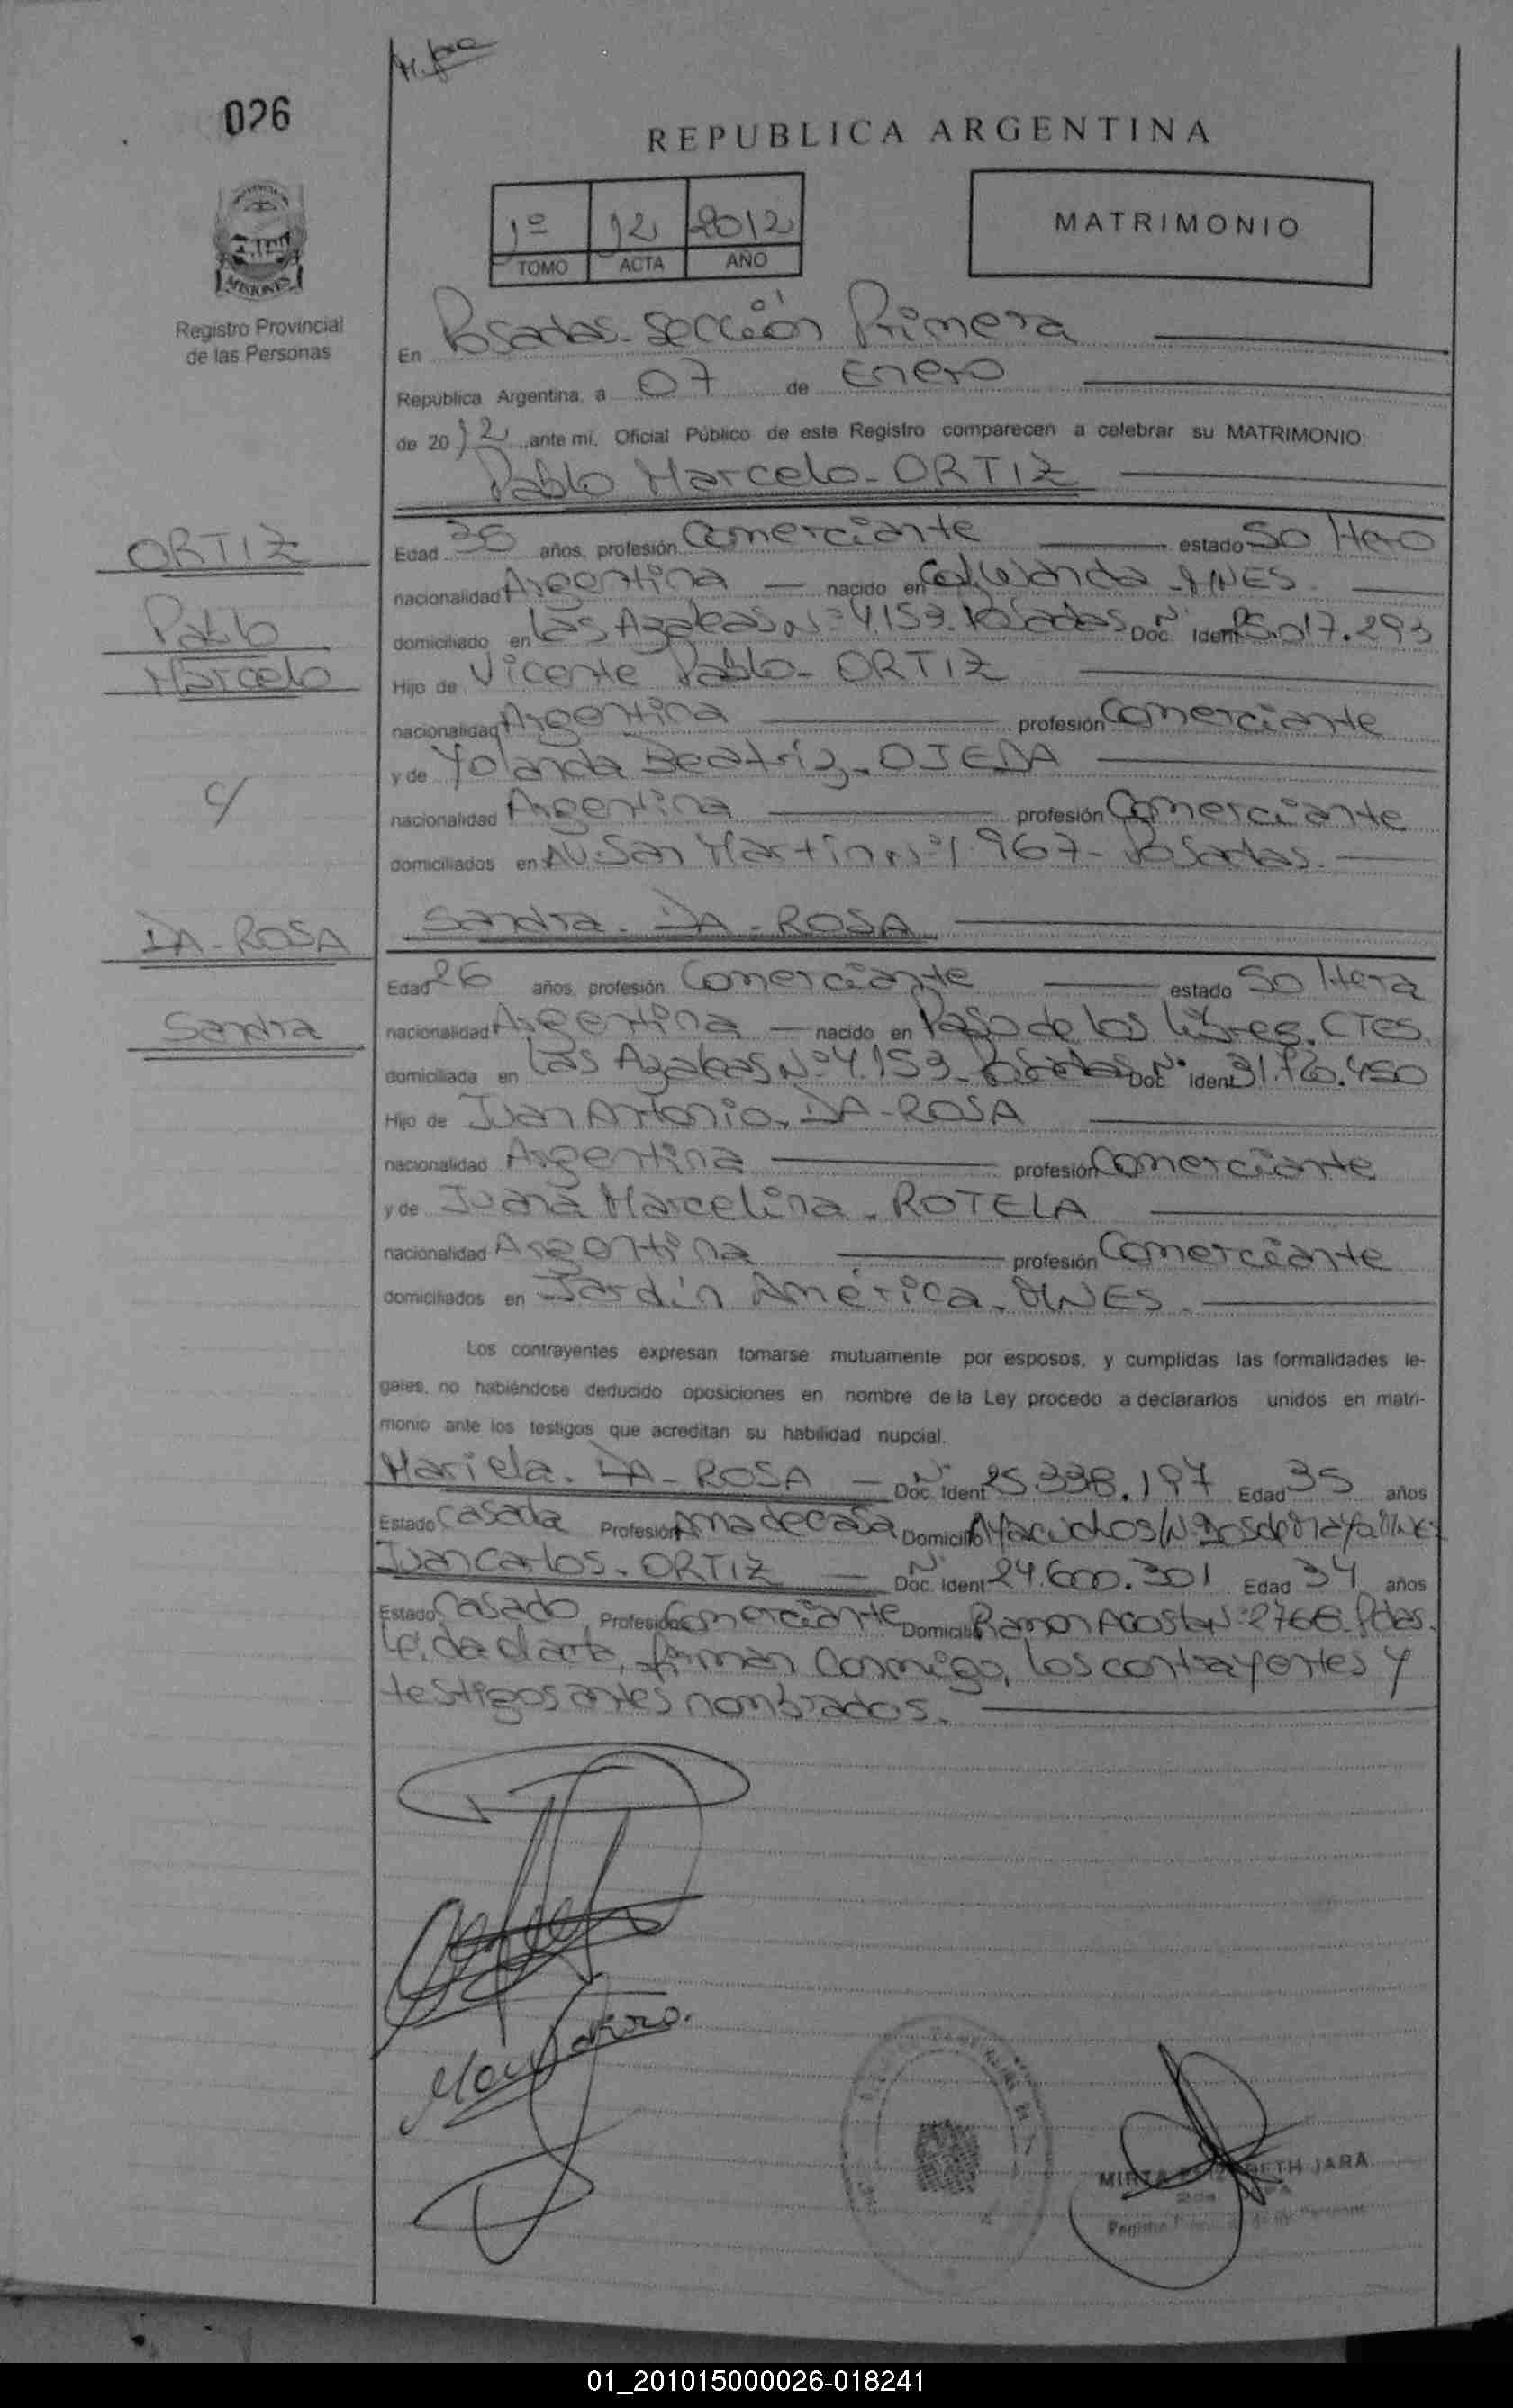 026
REPUBLICA ARGENTINA
1º 12 2012
TOMO ACTA AÑO
MATRIMONIO
MISIONES
Registro Provincial
de las Personas
En Posadas - Sección Primera
República Argentina, a 07 de Enero
de 2012 ante mí, Oficial Público de este Registro comparecen a celebrar su MATRIMONIO:
Pablo Marcelo - ORTIZ
ORTIZ
Pablo
Marcelo
c/
DA - ROSA
Sandra
Edad 36 años, profesión Comerciante estado Soltero
nacionalidad Argentina nacido en Col. Wanda - MNES.
domiciliado en Las Azaleas Nº 4.159. Posadas Doc. Nº Ident 25.017.293
Hijo de Vicente Pablo - ORTIZ
nacionalidad Argentina profesión Comerciante
y de Yolanda Beatriz - OJEDA
nacionalidad Argentina profesión Comerciante
domiciliados en Av. San Martin Nº 1.967 - Posadas.
Sandra - DA - ROSA
Edad 26 años, profesión Comerciante estado Soltera
nacionalidad Argentina nacido en Paso de los Libres. CTES.
domiciliada en Las Azaleas Nº 4.159 - Posadas Doc. Nº Ident 31.720.450
Hijo de Juan Antonio - DA - ROSA
nacionalidad Argentina profesión Comerciante
y de Juana Marcelina - ROTELA
nacionalidad Argentina profesión Comerciante
domiciliados en Jardín América - MNES.
Los contrayentes expresan tomarse mutuamente por esposos, y cumplidas las formalidades le-
gales, no habiéndose deducido oposiciones en nombre de la Ley procedo a declararlos unidos en matri-
monio ante los testigos que acreditan su habilidad nupcial.
Mariela - DA - ROSA Doc. Nº Ident 25.338.197 Edad 35 años
Estado Casada Profesión Ama de casa Domicilio Ayacucho S/N
Juan Carlos - ORTIZ Doc. Nº Ident 24.600.301 Edad 34 años
Estado Casado Profesión Comerciante Domicilio Ramon Acosta Nº 2768. Pdas.
Leída el acta, firman conmigo, los contrayentes y
testigos antes nombrados.
MIRTA JARA
01_201015000026-018241